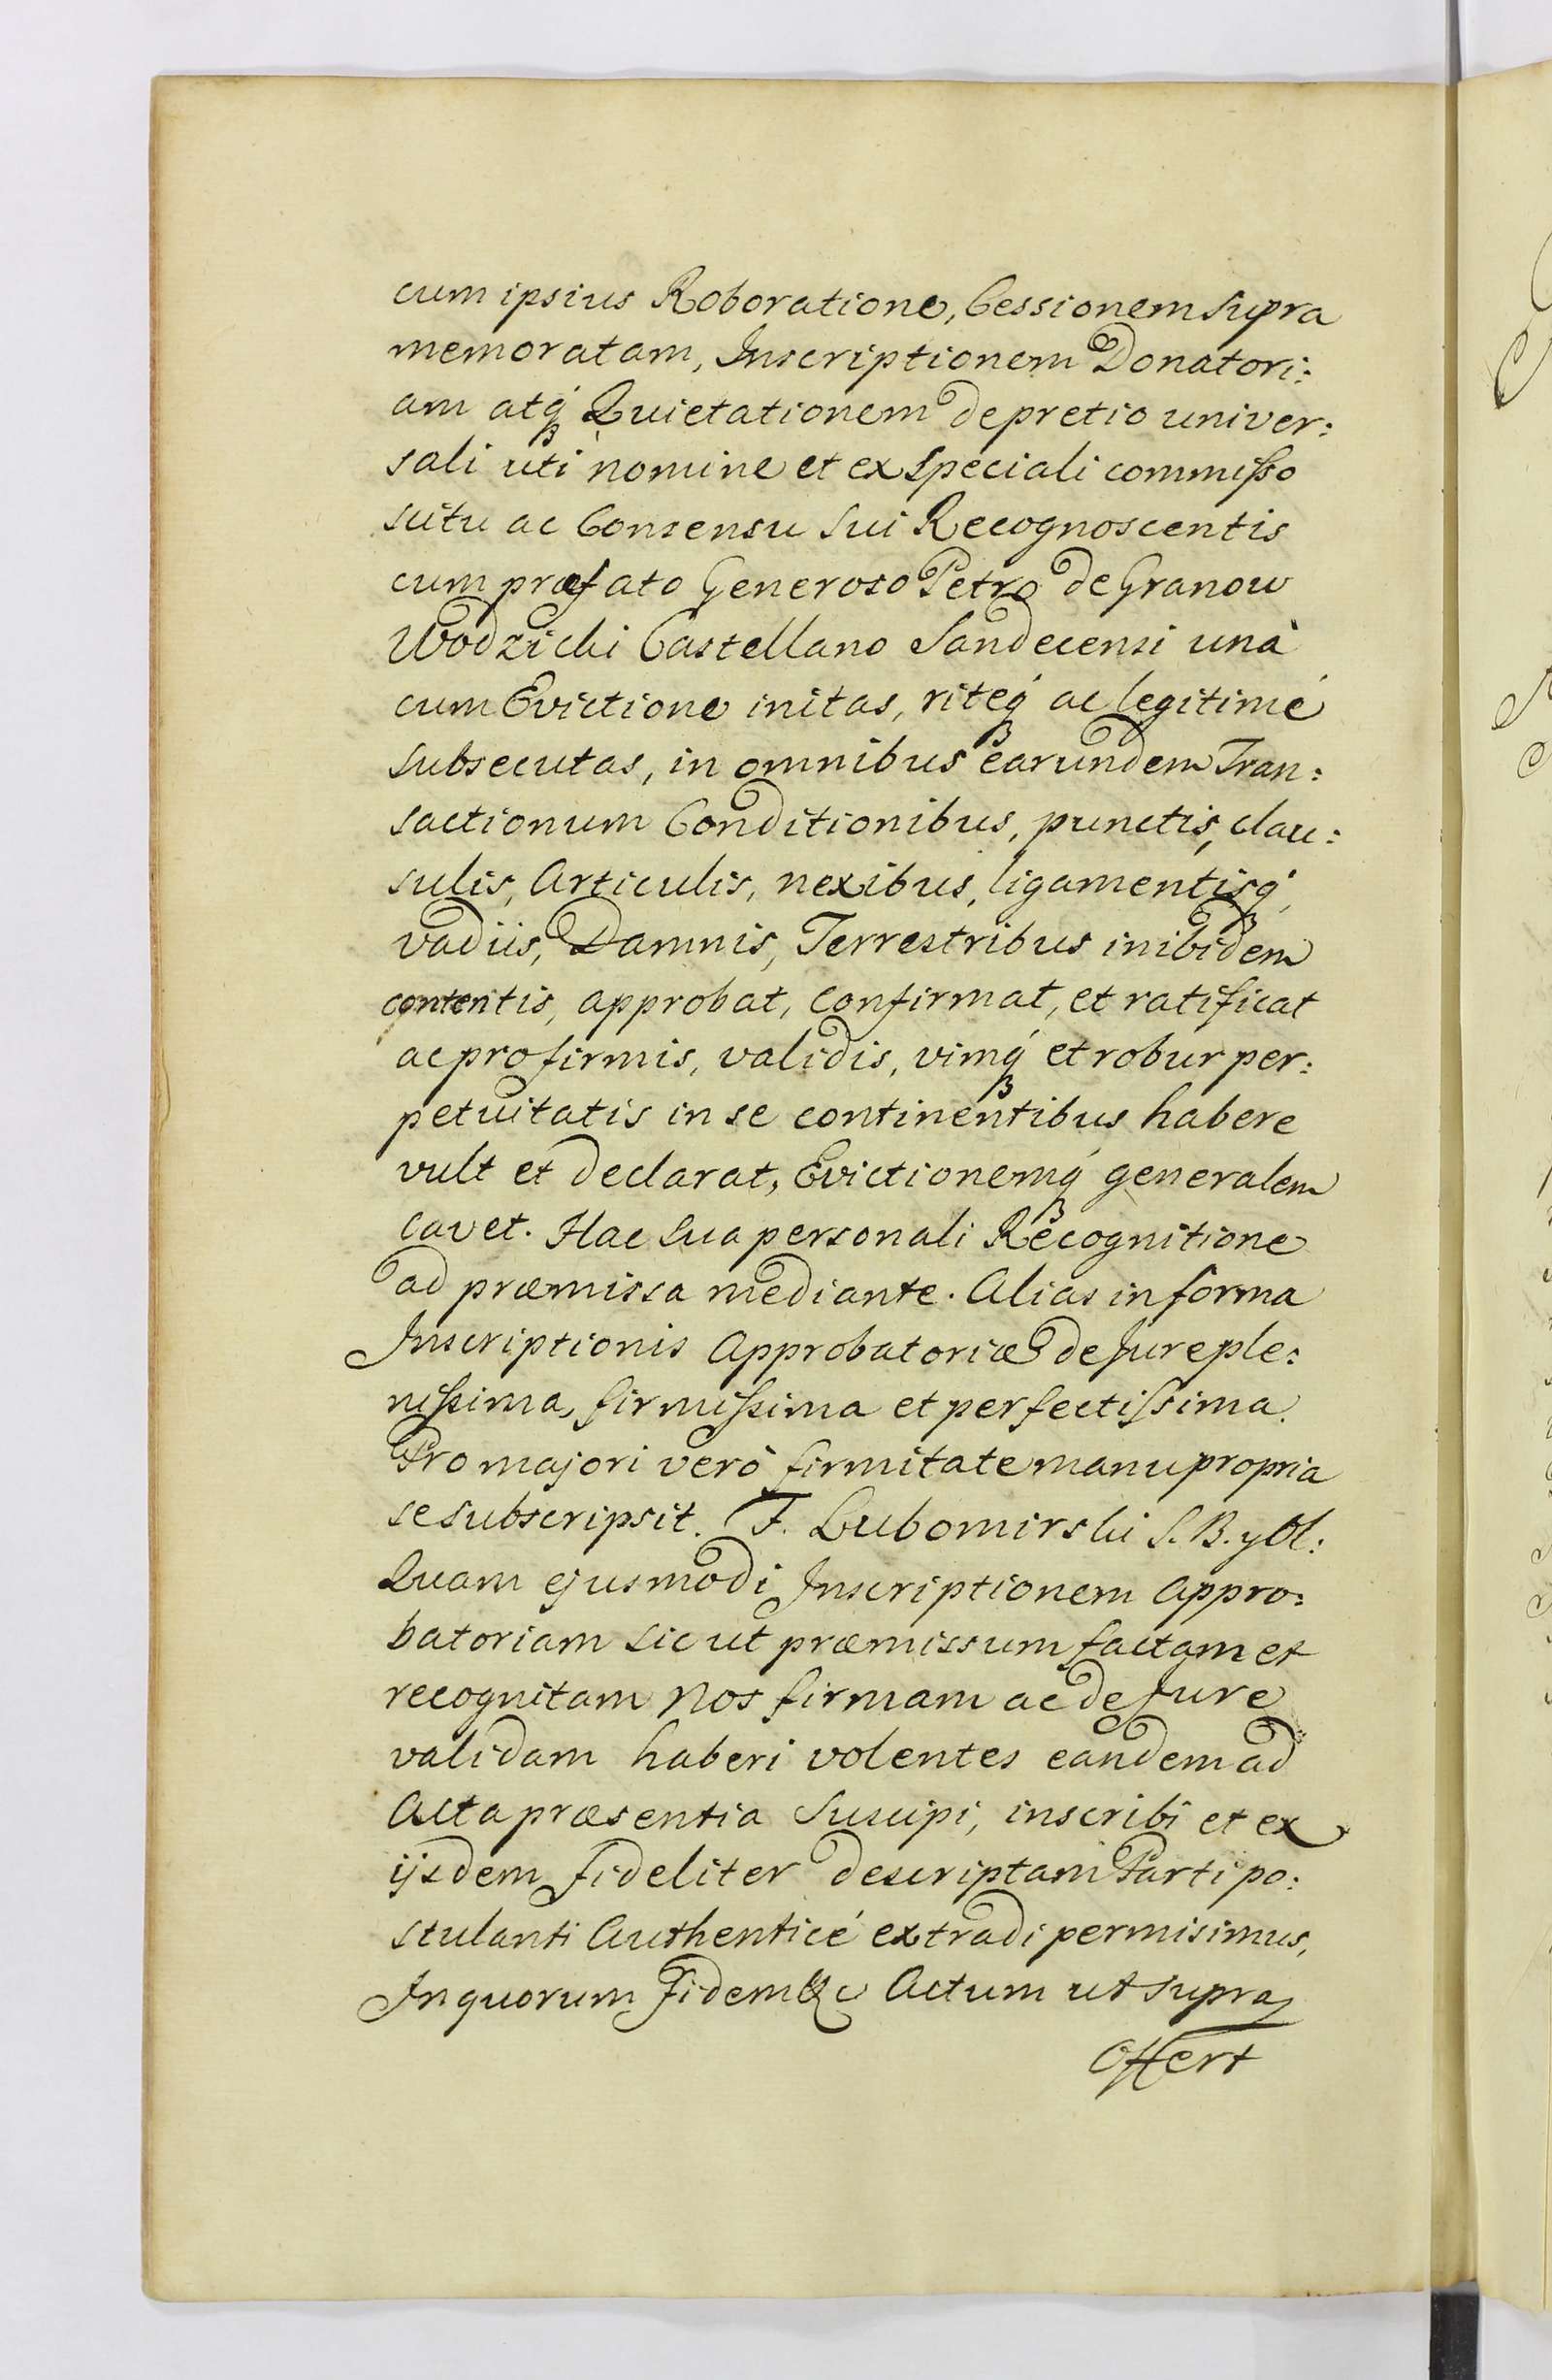 cum ipsius Roboratione, Cessionem supra
memoratam, Inscriptionem Donatori:
am atq́ Quietationem de pretio univer:
sali uti nomine et ex speciali commiſso
scitu ac Consensu Sui Recognoscentis
cum præfato Generoso Petro de Granow
Wodzicki Castellano Sandecensi unà
cum Evictione initas, riteq́ ac legitimé
subsecutas, in omnibus earundem Tran:
sactionum Conditionibus, punctis, clau:
sulis, Articulis, nexibus, ligamentisq́,
vadiis, Damnis, Terrestribus inibidem
contentis, approbat, confirmat, et ratificat
ac pro firmis, validis, vimq́ et robur per:
petuitatis in se continentibus habere
vult et declarat, Evictionemq́ generalem
cavet. Hac Sua personali Recognitione
ad præmissa mediante. Alias in forma
Inscriptionis Approbatoriæ de Jure ple:
niſsima, firmiſsima et perfectiſsima.
Pro majori verò firmitate manu propria
se subscripsit. F. Lubomirski S. B. y Ol:
Quam ejusmodi Inscriptionem Appro:
batoriam sic ut præmissum factam et
recognitam Nos firmam ac de Jure
validam haberi volentes eandem ad
Acta præsentia Suscipi, inscribi et ex
ijsdem fideliter descriptam Parti po:
stulanti Authenticé extradi permisimus,
In quorum Fidem &c Actum ut supra
Offert